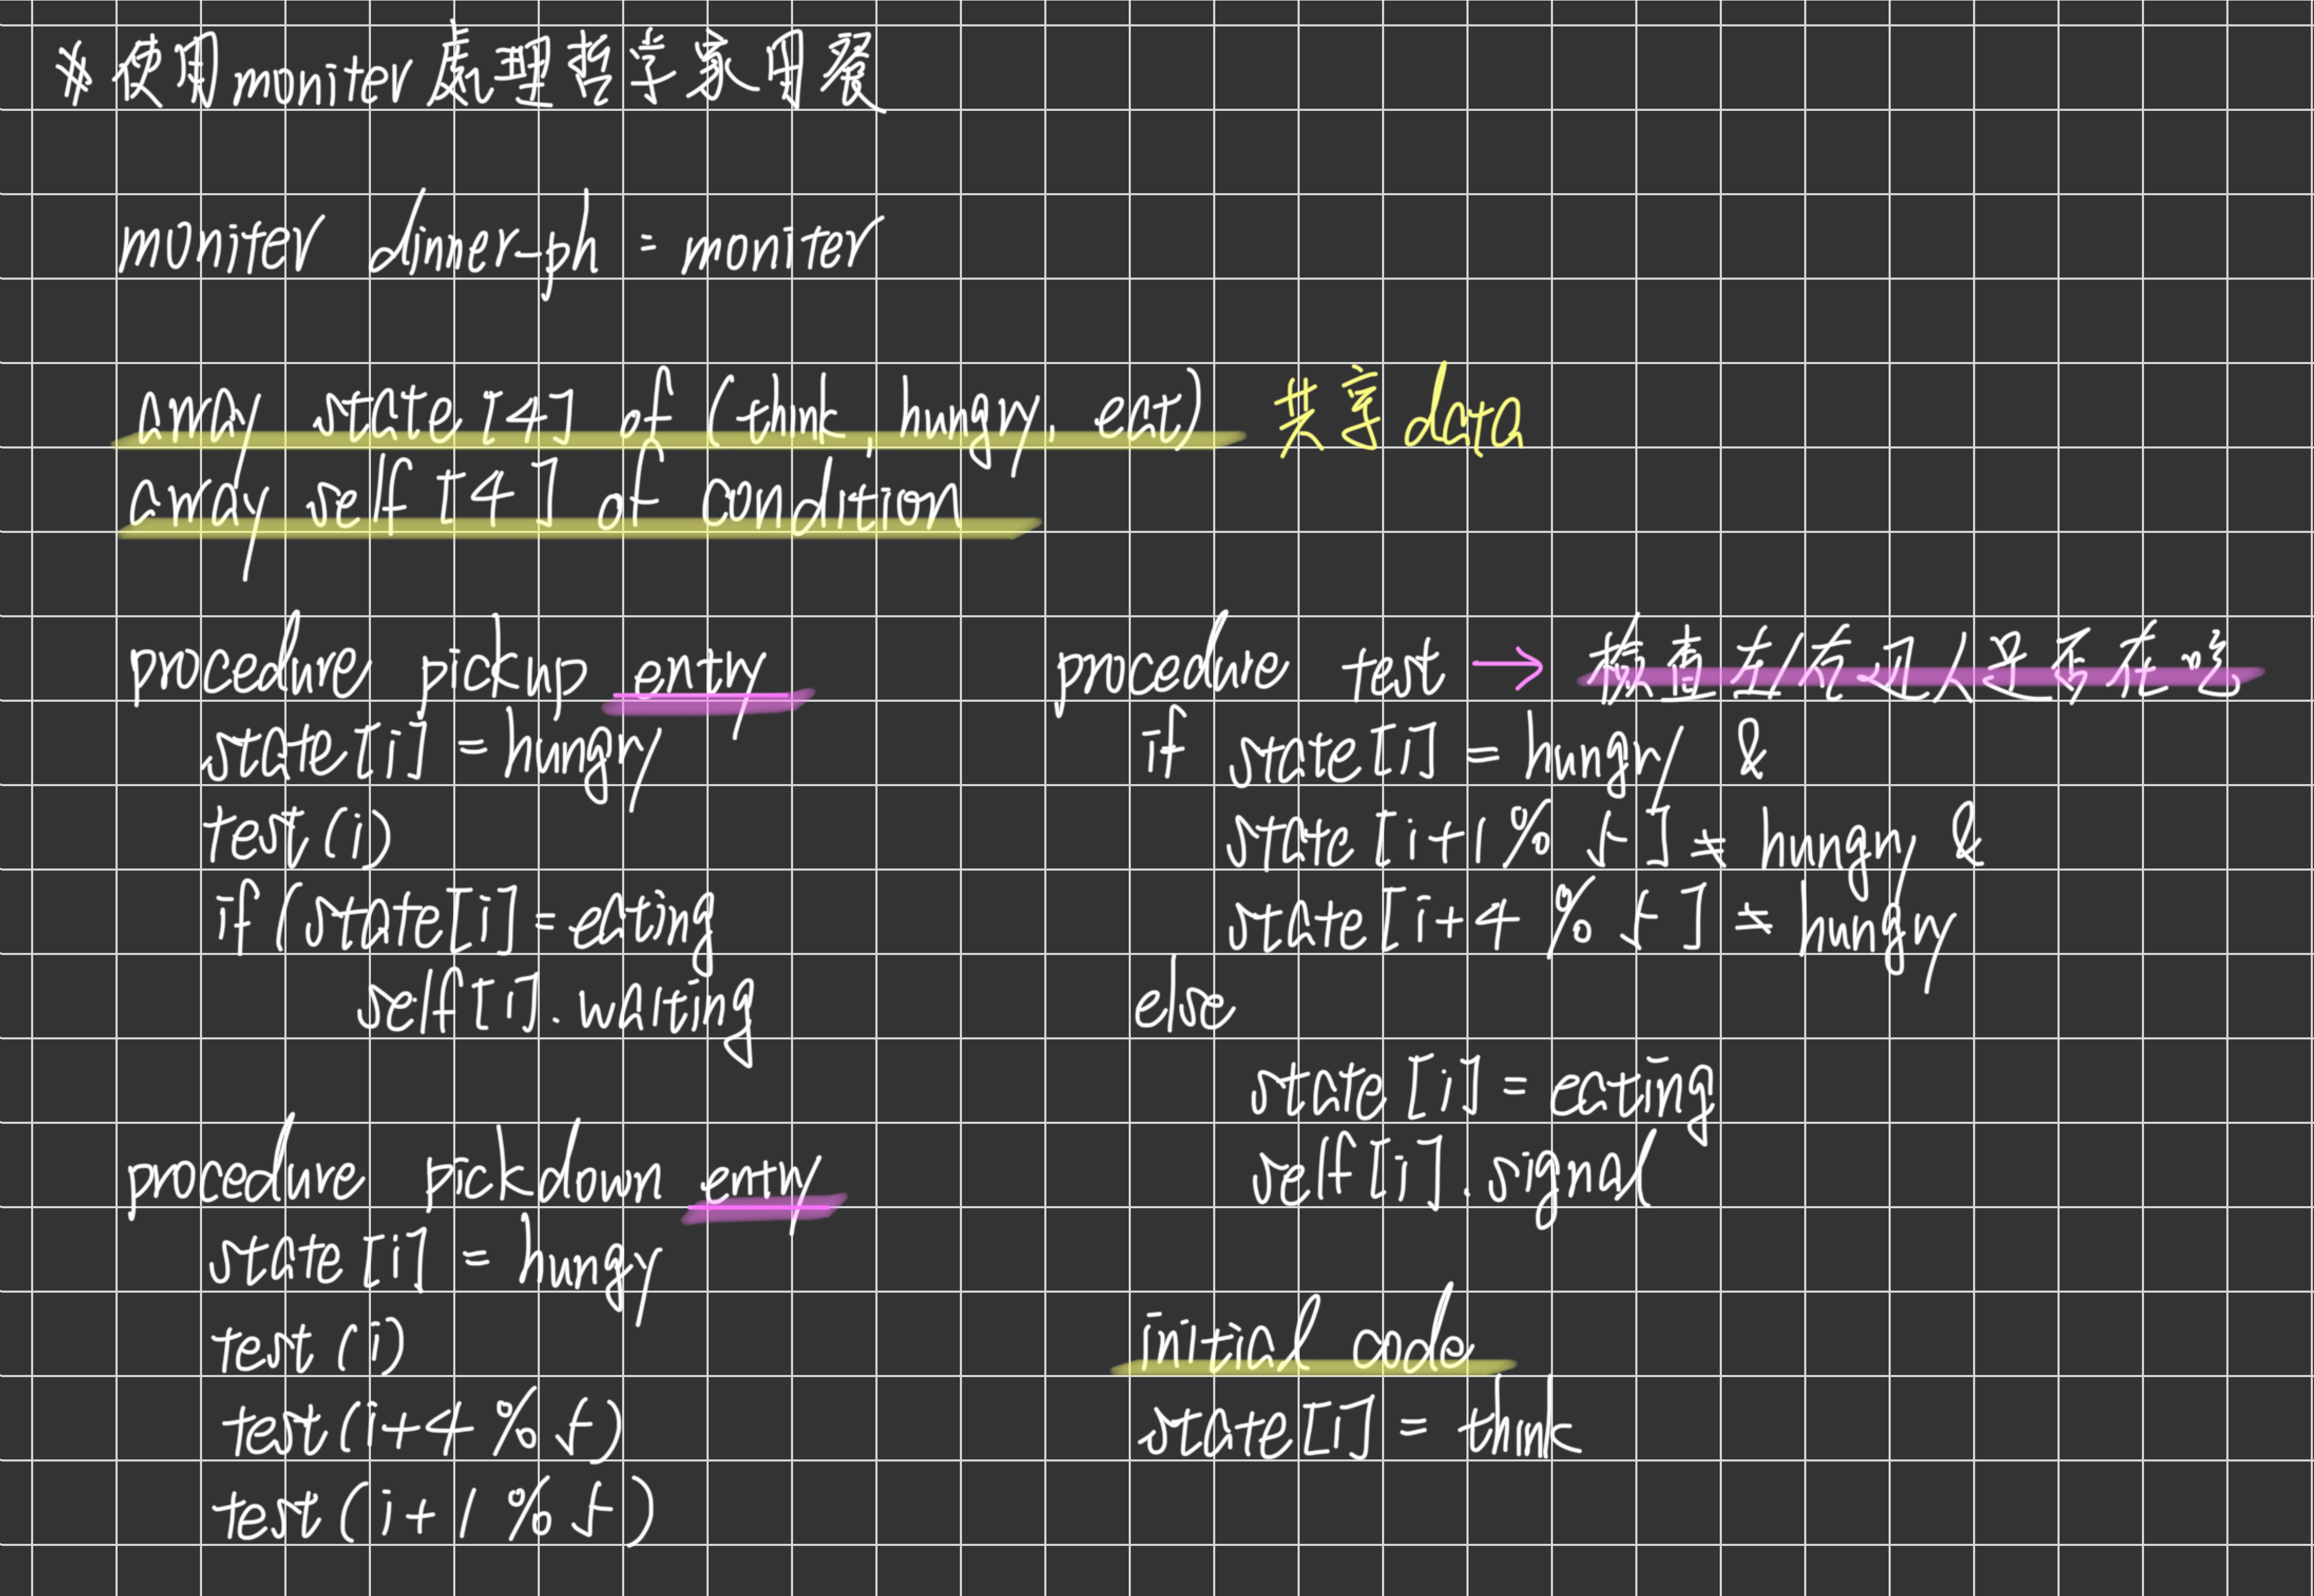 ※使用moniter處理哲学家用餐
moniter dinner-ph = moniter
array state [4] of (think, hungry, eat) 共享data
array self [4] of condition
procedure pickup entry
state[i] = hungry
test(i)
if (state[i] = eating
self[i].waiting
procedure pickdown entry
state[i] = hungry
test(i)
test(i+4 % 5)
test(i+1 % 5)
procedure test → 檢查左/右边人是否在吃
if state[i] = hungry &
state[i+1 % 5] ≠ hungry &
state[i+4 % 5] ≠ hungry
else
state[i] = eating
self[i].signal
initial code
state[i] = think